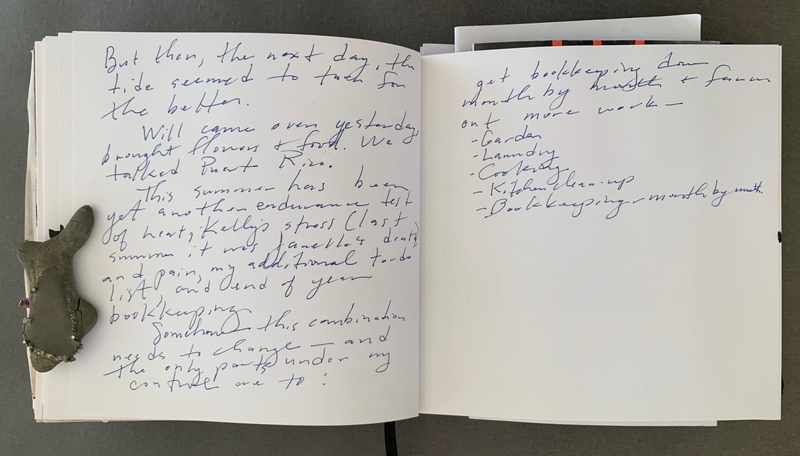 But then, the next day, the
tide seemed to turn for
the better.
Will came over yesterday,
brought flowers & food. We
talked Puert Rico.
This summer has been
yet another endurance test
of heat, Kelly's stress (last
summer it was death)
and pain, my additional to-do
list, and end of year
bookkeeping
Somehow this combination
needs to change — and
the only parts under my
control are to:
get bookkeeping down
month by month & farm
out more work —
- Garden
- Laundry
- Cooking
- Kitchen clean-up
- Bookkeeping - month by month